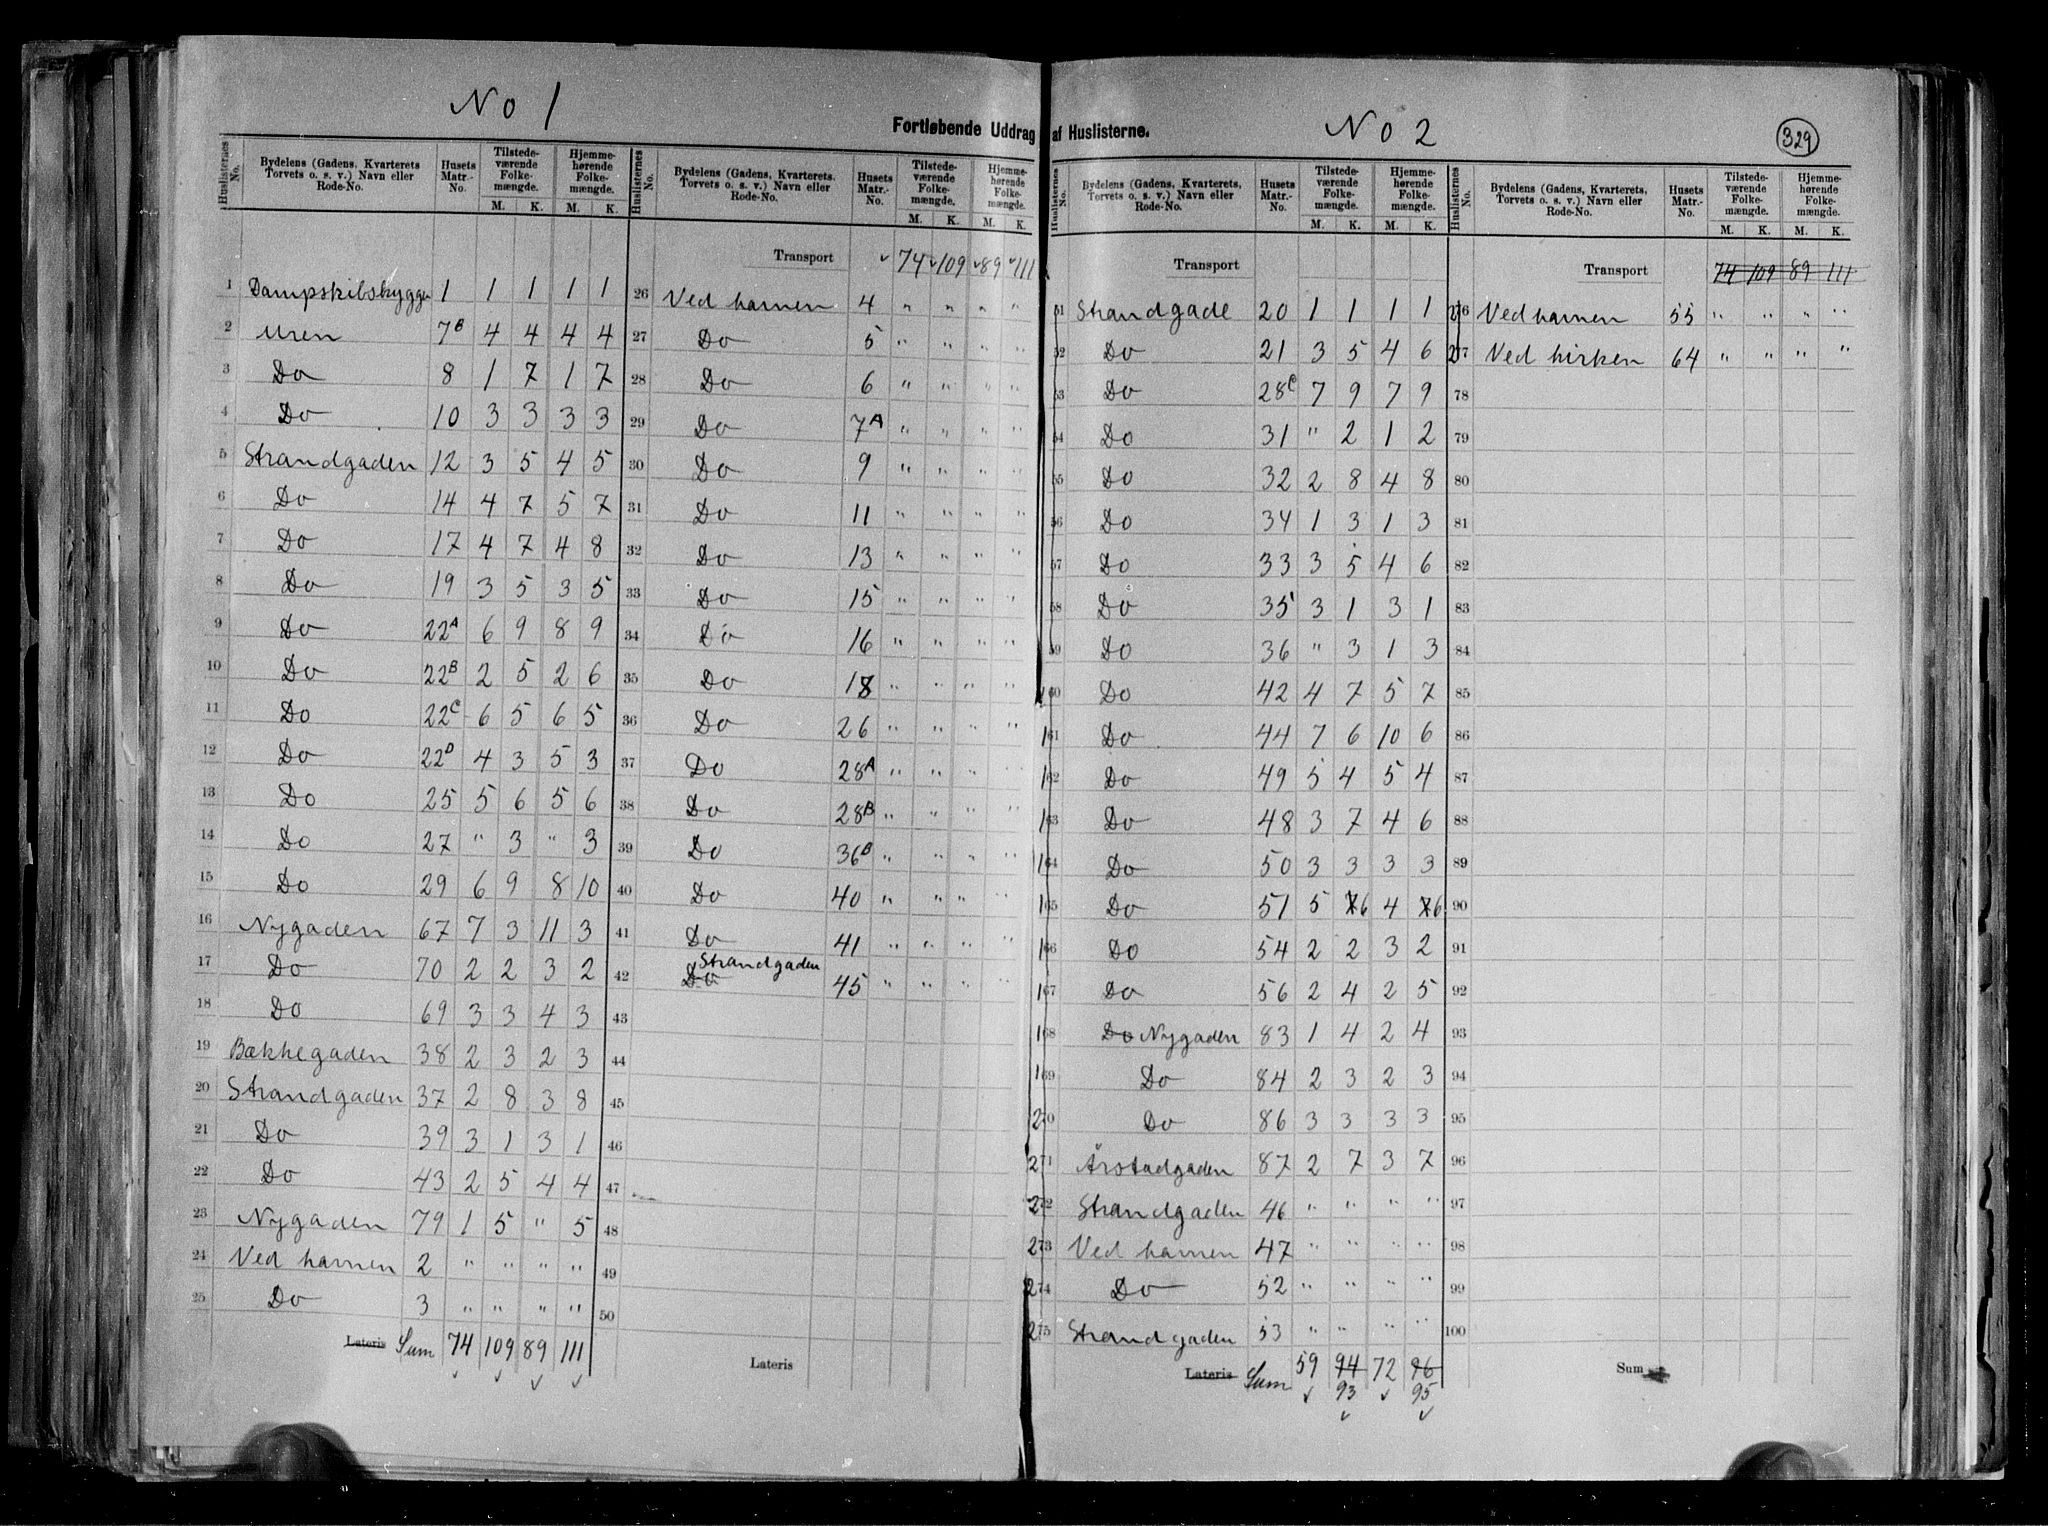 No 1
Fortløbende Uddrag af Huslisterne.
No 2
329
Huslisternes No. | Bydelens (Gadens, Kvarterets Torvets o. s. v.) Navn eller Rode-No. | Husets Matr.-No. | Tilstedeværende Folkemængde. M. K. | Hjemmehørende Folkemængde. M. K.
1 Dampskibsbrygge 1 1 1 1 1
2 Uren 7B 4 4 4 4
3 Do 8 1 7 1 7
4 Do 10 3 3 3 3
5 Strandgaden 12 3 5 4 5
6 Do 14 4 7 5 7
7 Do 17 4 7 4 8
8 Do 19 3 5 3 5
9 Do 22A 6 9 8 9
10 Do 22B 2 5 2 6
11 Do 22C 6 5 6 5
12 Do 22D 4 3 5 3
13 Do 25 5 6 5 6
14 Do 27 " 3 " 3
15 Do 29 6 9 8 10
16 Nygaden 67 7 3 11 3
17 Do 70 2 2 3 2
18 Do 69 3 3 4 3
19 Bækkegaden 38 2 3 2 3
20 Strandgaden 37 2 8 3 8
21 Do 39 3 1 3 1
22 Do 43 2 5 4 4
23 Nygaden 79 1 5 " 5
24 Ved havnen 2 " " " "
25 Do 3 " " " "
Lateris Sum 74 109 89 111
Huslisternes No. | Bydelens (Gadens, Kvarterets. Torvets o. s. v.) Navn eller Rode-No. | Husets Matr.-No. | Tilstedeværende Folkemængde. M. K. | Hjemmehørende Folkemængde. M. K.
Transport 74 109 89 111
26 Ved havnen 4 " " " "
27 Do 5 " " " "
28 Do 6 " " " "
29 Do 7A " " " "
30 Do 9 " " " "
31 Do 11 " " " "
32 Do 13 " " " "
33 Do 15 " " " "
34 Do 16 " " " "
35 Do 18 " " " "
36 Do 26 " " " "
37 Do 28A " " " "
38 Do 28B " " " "
39 Do 36B " " " "
40 Do 40 " " " "
41 Do 41 " " " "
42 Do Strandgaden 45 " " " "
43
44
45
46
47
48
49
50
Lateris
Huslisternes No. | Bydelens (Gadens, Kvarterets, Torvets o. s. v.) Navn eller Rode-No. | Husets Matr.-No. | Tilstedeværende Folkemængde. M. K. | Hjemmehørende Folkemængde. M. K.
Transport
51 Strandgade 20 1 1 1 1
52 Do 21 3 5 4 6
53 Do 28C 7 9 7 9
54 Do 31 " 2 1 2
55 Do 32 2 8 4 8
56 Do 34 1 3 1 3
57 Do 33 3 5 4 6
58 Do 35 3 1 3 1
59 Do 36 " 3 1 3
60 Do 42 4 7 5 7
61 Do 44 7 6 10 6
62 Do 49 5 4 5 4
63 Do 48 3 7 4 6
64 Do 50 3 3 3 3
65 Do 51 5 7 6 4 7 6
66 Do 54 2 2 3 2
67 Do 56 2 4 2 5
68 Do Nygaden 83 1 4 2 4
69 Do 84 2 3 2 3
70 Do 86 3 3 3 3
71 Årstadgaden 87 2 7 3 7
72 Strandgaden 46 " " " "
73 Ved havnen 47 " " " "
74 Do 52 " " " "
75 Strandgaden 53 " " " "
Lateris Sum 59 94 72 96
93 95
Huslisternes No. | Bydelens (Gadens, Kvarterets, Torvets o. s. v.) Navn eller Rode-No. | Husets Matr.-No. | Tilstedeværende Folkemængde. M. K. | Hjemmehørende Folkemængde. M. K.
Transport 74 109 89 111
76 Ved havnen 55 " " " "
77 Ved kirken 64 " " " "
78
79
80
81
82
83
84
85
86
87
88
89
90
91
92
93
94
95
96
97
98
99
100
Sum